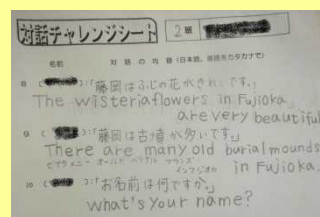 対話チャレンジシート
2班
名前 対話の内容(日本語、英語をカタカナで)
8 ( )：「藤岡はふじの花がきれいです。」
The wisteriaflowers in Fujioka
are very beautiful
9 ( )：「藤岡は古墳が多いです。」
There are many old burial mounds
in Fujioka.
10 ( )：「お名前は何ですか。」
what's your name?